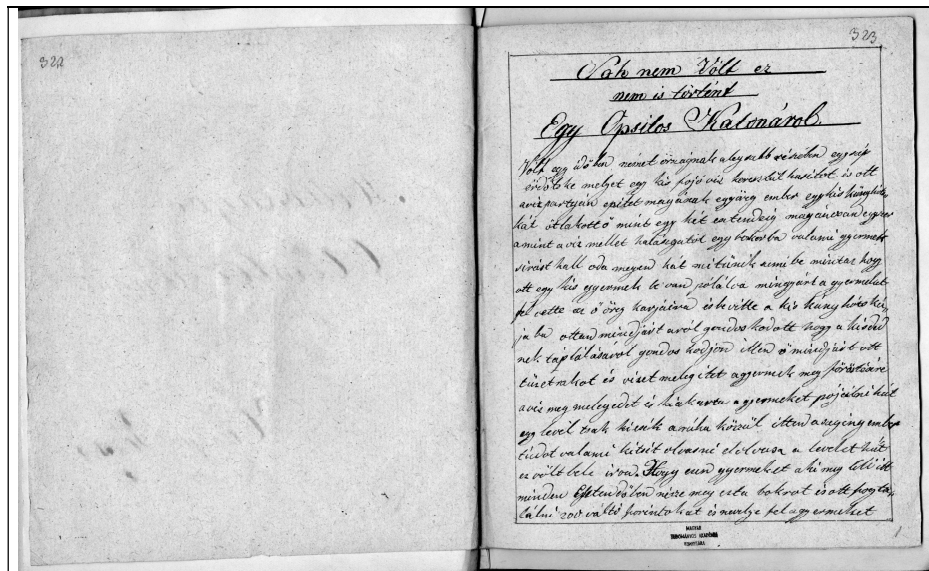 322
323
nem Volt ez
nem is történt
Egy Opsitos Katonárol
Volt egy időben német országnak alegszebb részeben egy szép
erdőtske melyet egy kis fojó viz keresztül hasitot is ott
aviz partyán epitet magának egy öreg ember egy kis kunyhóts
kát ottlakott ő mint egy hét esztendeig magán ezánd egyszer
amint a viz mellet halászgatot egy bokorba valami gyermek
sirást hall oda megyen hát mi tünik szemibe mintaz hogy
ott egy kis gyermek be van pólálva mingyárt a gyermeket
fel vette az ő öreg karjaira és bevitte a kis kunyhóts ká
ja ba ottan mindjárt arol gondos kodott hogy a kisded
nek táplálásárol gondos kodjon itten ő mindjárt ott
tüzet rakot és vizet melegitet agyermek meg förösztésére
aviz meg melegedet és ki akarta a gyermeket
egy levél tsak kiesik a ruha közzül itten aszegény ember
tudot valami kitsit olvasni elolvasa a levelet hát
ez volt bele irva. Hogy ezen gyermeket a ki meg leli itt
minden Esztendőben nézze meg ezta bokrot és ott fog ta
lálni 200 váltó forintokat és nevelje fel agyermeket
MAGYAR
TUDOMÁNYOS AKADÉMIA
KÖNYVTÁRA
1